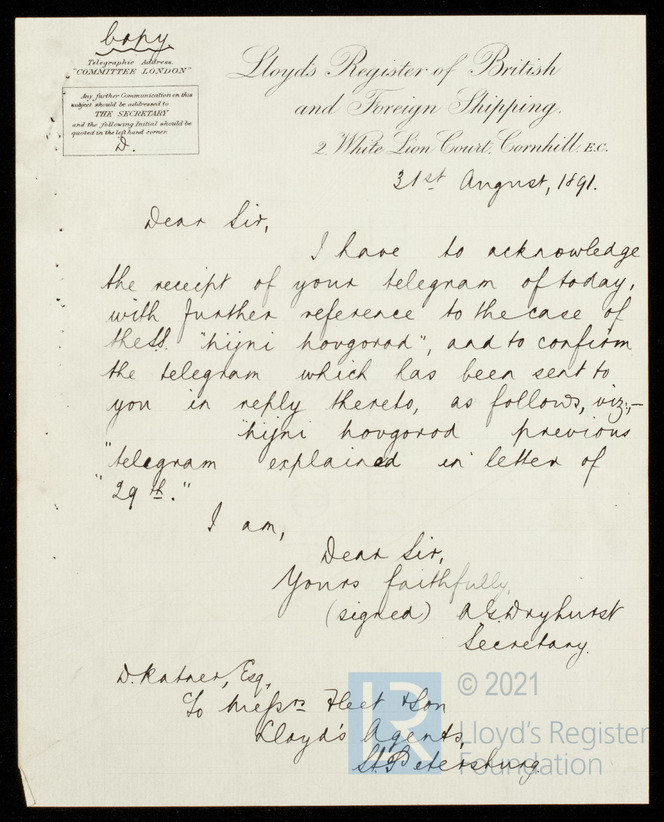 Copy
Telegraphic Address.
"COMMITTEE LONDON"
Any further Communication on this
subject should be addressed to
THE SECRETARY
and the following Initial should be
quoted in the left hand corner.
D.
Lloyd's Register of British
and Foreign Shipping.
2, White Lion Court, Cornhill, E.C.
31st August, 1891.
Dear Sir,
I have to acknowledge
the receipt of your telegram of today,
with further reference to the case of
the SS. "Nijni Novgorod", and to confirm
the telegram which has been sent to
you in reply thereto, as follows, viz:-
"Nijni Novgorod previous
"telegram explained in letter of
"29th."
I am,
Dear Sir,
Yours faithfully,
(signed) A.G. Dryhurst
Secretary.
D. Ratner, Esq,
To Messrs Fleet & Son
Lloyd's Agents,
St. Petersburg
© 2021
Lloyd's Register
Foundation